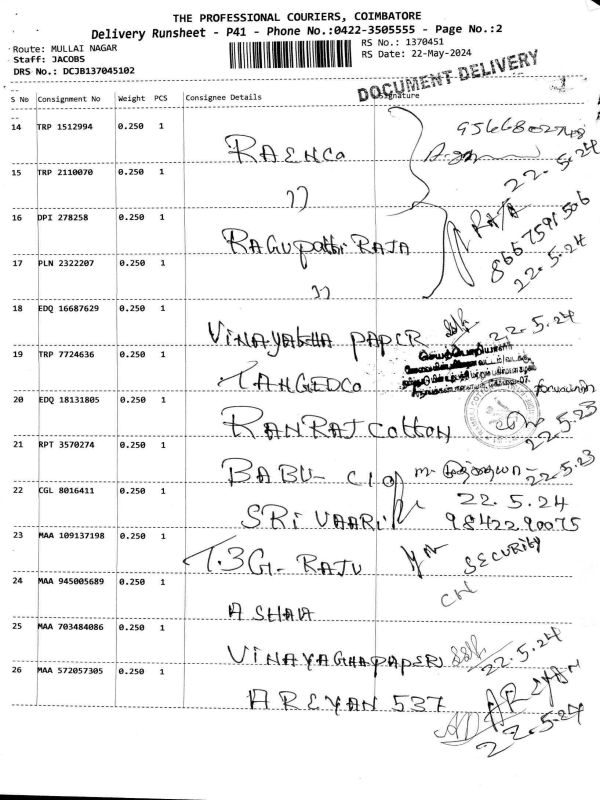 THE PROFESSIONAL COURIERS, COIMBATORE
Delivery Runsheet - P41 - Phone No.:0422-3505555 - Page No.:2
Route: MULLAI NAGAR
Staff: JACOBS
DRS No.: DCJB137045102
RS No.: 1370451
RS Date: 22-May-2024
DOCUMENT DELIVERY
S No Consignment No Weight PCS Consignee Details Signature
14 TRP 1512994 0.250 1 RAENCO 9566802748
22.5.24
15 TRP 2110070 0.250 1 11
16 DPI 278258 0.250 1 RAGUpathi RAJA RAJA
8667591506
22.5.24
17 PLN 2322207 0.250 1 11
18 EDQ 16687629 0.250 1 VINAYAKHA PAPER 22.5.24
19 TRP 7724636 0.250 1 TANGEDCO
20 EDQ 18131805 0.250 1 RANRAJ COTTON 22.5.23
21 RPT 3570274 0.250 1 BABU- C10 22.5.23
22 CGL 8016411 0.250 1 SRI VAARI 22.5.24
9842290075
23 MAA 109137198 0.250 1 T.3G- RAJU SECURITY
24 MAA 945005689 0.250 1
25 MAA 703484086 0.250 1 VINAYAGHA PAPER 22.5.24
26 MAA 572057305 0.250 1 AREYAN 537 AREYAN
22.5.24